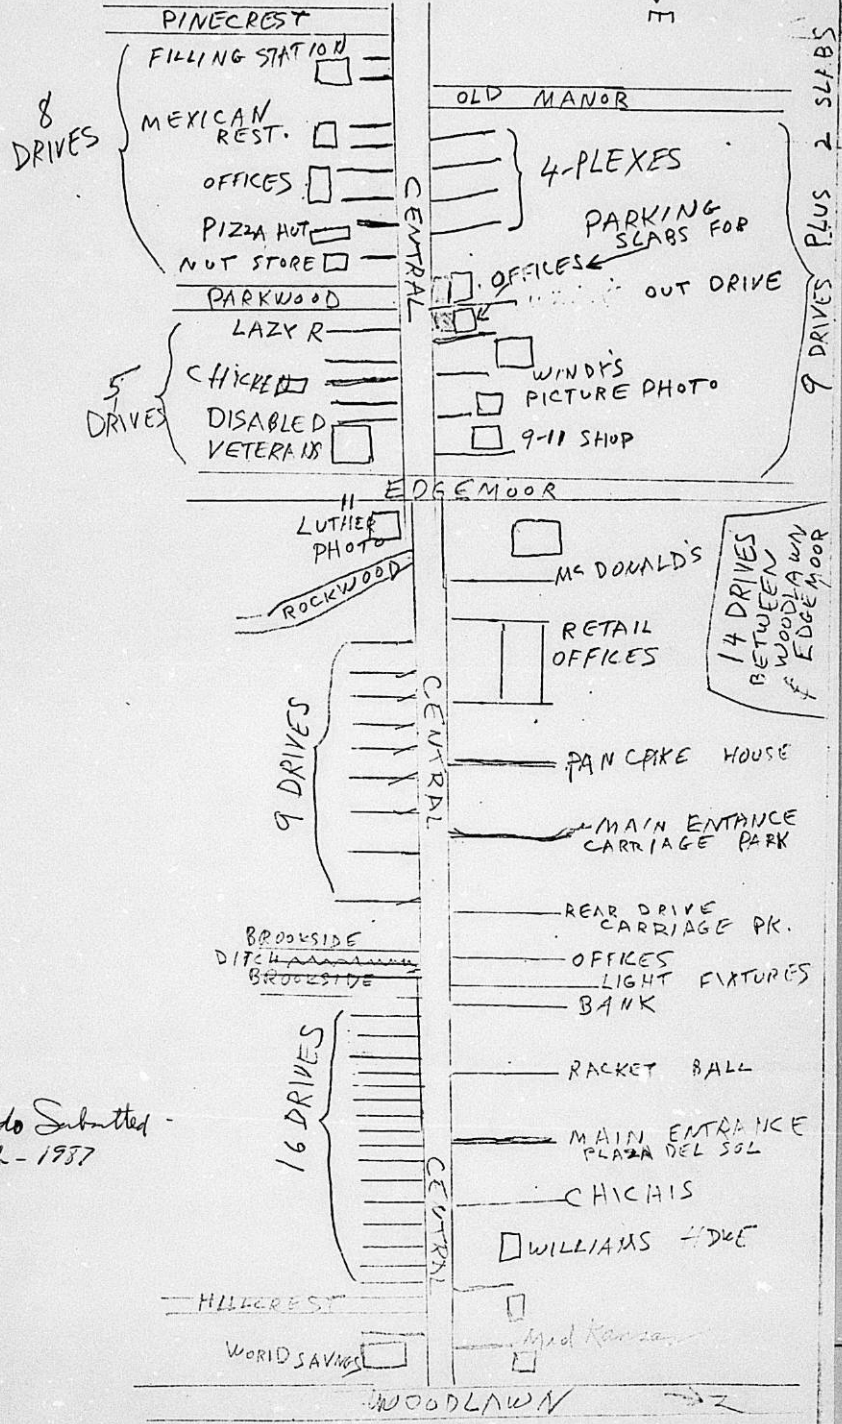 PINECREST
FILLING STATION
8
DRIVES
MEXICAN
REST.
OFFICES
PIZZA HUT
NUT STORE
PARKWOOD
LAZY R
5
DRIVES
CHICKEN
DISABLED
VETERANS
CENTRAL
E
OLD MANOR
4-PLEXES
PARKING
SLABS FOR
OFFICES
OUT DRIVE
WINDY'S
PICTURE PHOTO
9-11 SHOP
9 DRIVES PLUS 2 SLABS
EDGEMOOR
LUTHER
PHOTO
ROCKWOOD
McDONALD'S
RETAIL
OFFICES
14 DRIVES
BETWEEN
WOODLAWN
& EDGEMOOR
9 DRIVES
CENTRAL
PANCAKE HOUSE
MAIN ENTANCE
CARRIAGE PARK
REAR DRIVE
CARRIAGE PK.
BROOKSIDE
DITCH
BROOKSIDE
OFFICES
LIGHT FIXTURES
BANK
16 DRIVES
RACKET BALL
MAIN ENTRANCE
PLAZA DEL SOL
CENTRAL
CHICHIS
WILLIAMS HDWE
Submitted -
- 1987
HILLCREST
WORLD SAVINGS
Mid Kansas
WOODLAWN